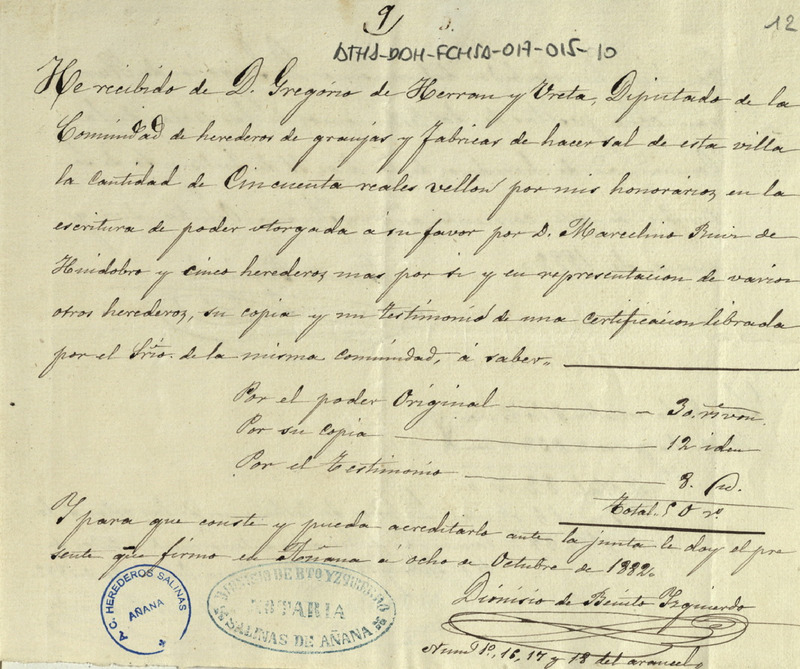 9
12
ATHA-DAH-FCHSA-017-015-10
He recibido de D. Gregório de Herran y Vreta, Diputado de la
Comunidad de herederos de granjas y fabricas de hacer sal de esta villa
la cantidad de Cincuenta reales vellon por mis honorarios, en la
escritura de poder otorgada á su favor por D. Marcelino Ruiz de
Huidobro y cinco herederos mas por si y en representacion de varios
otros herederos, su copia y un testimonio de una certificacion librada
por el Srio. de la misma comunidad, á saber.
Por el poder Original 30. rs von.
Por su copia 12 idem
Por el Testimonio 8. id.
Total. 50 rs.
Y para que conste y pueda acreditarlo ante la junta le doy el pre
sente que firmo en Añana á ocho de Octubre de 1882.
Dionisio de Benito Izquierdo
Numos 1º, 16, 17 y 18 del arancel
A.C. HEREDEROS SALINAS
AÑANA
DIONISIO DE BTO YZQUIERDO
NOTARIA
SALINAS DE AÑANA